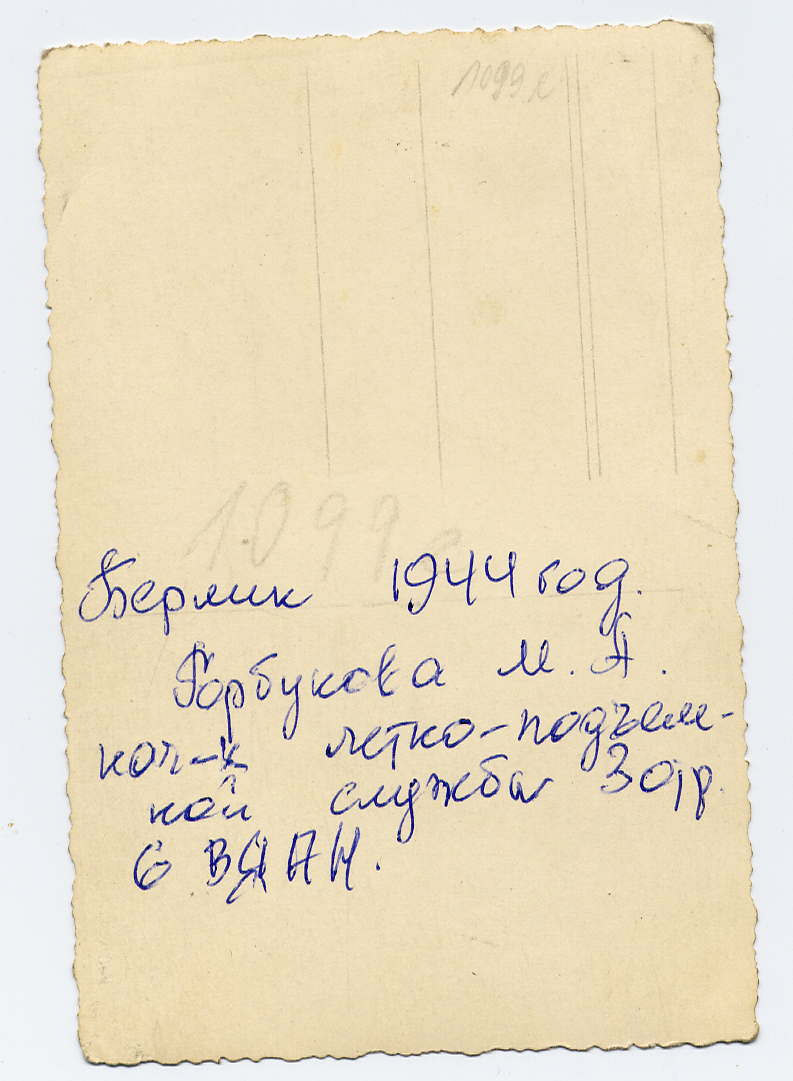 1099 л
1099
Берлин 1944 год.
Горбунова М. А.
нач-к летно-подъем-
ной службы 3 отр.
6 ВДАН.